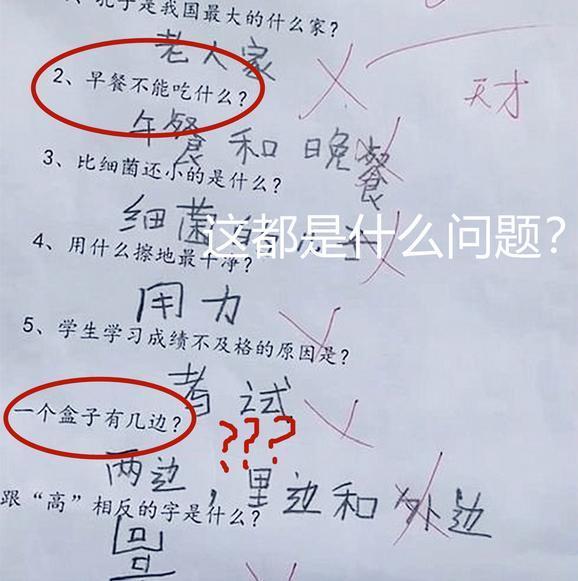 、孔子是我国最大的什么家?
老人家
天才
2、早餐不能吃什么?
午餐和晚餐
3、比细菌还小的是什么?
细菌的儿子
这都是什么问题?
4、用什么擦地最干净?
用力
5、学生学习成绩不及格的原因是?
考试
一个盒子有几边?
???
两边,里边和外边
跟“高”相反的字是什么?